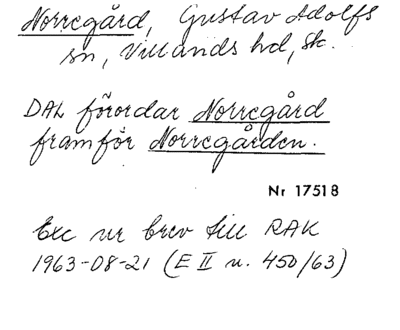 Norregård, Gustav Adolfs
sn, Villands hd, Sk.
DAL förordar Norregård
framför Norregården.
Nr 17518
Exc ur brev till RAK
1963-08-21 (E II u. 450/63)